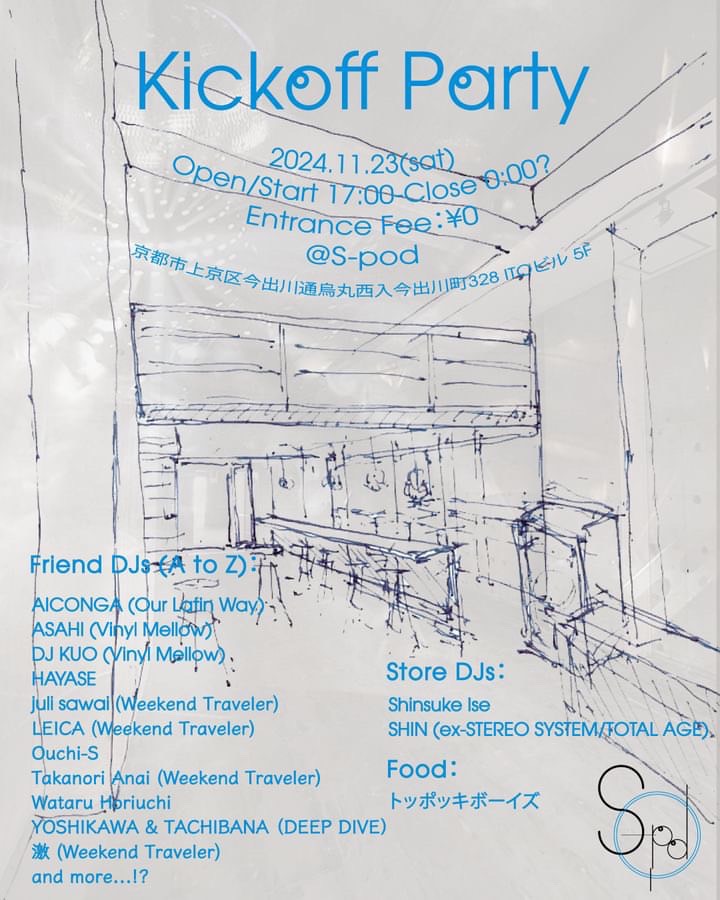 Kickoff Party
2024.11.23(sat)
Open/Start 17:00-Close 0:00?
Entrance Fee:¥0
@S-pod
京都市上京区今出川通烏丸西入今出川町328 ITOビル 5F
Friend DJs (A to Z):
AICONGA (Our Latin Way)
ASAHI (Vinyl Mellow)
DJ KUO (Vinyl Mellow)
HAYASE
juli sawai (Weekend Traveler)
LEICA (Weekend Traveler)
Ouchi-S
Takanori Anai (Weekend Traveler)
Wataru Horiuchi
YOSHIKAWA & TACHIBANA (DEEP DIVE)
激 (Weekend Traveler)
and more...!?
Store DJs:
Shinsuke Ise
SHIN (ex-STEREO SYSTEM/TOTAL AGE)
Food:
トッポッキボーイズ
Spod